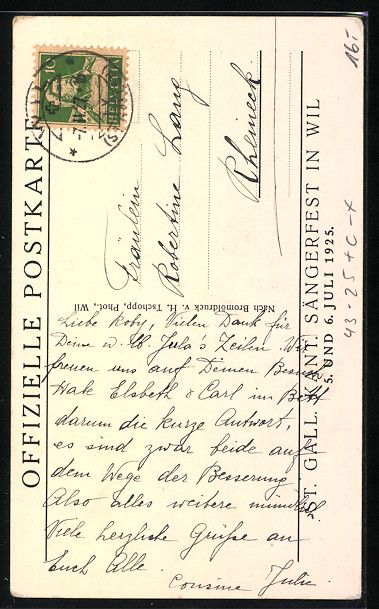 OFFIZIELLE POSTKARTE
ST. GALL. KANT. SÄNGERFEST IN WIL
5. UND 6. JULI 1925.
Nach Bromsilderdruck v. H. Tschopp, Phot., Wil
10
HELVETIA
Fräulein
Robertine Lang
Rheineck.
Liebe Roby, Vielen Dank für
Deine u. lb. Jula's Zeilen. Wir
freuen uns auf Deinen Besuch
Habe Elsbeth & Carl im Bett
darum die kurze Antwort,
es sind zwar beide auf
dem Wege der Besserung.
Also alles weitere mündlich
Viele herzliche Grüsse an
Euch Alle.
Cousine Julie.
16.-
43-25+C-X